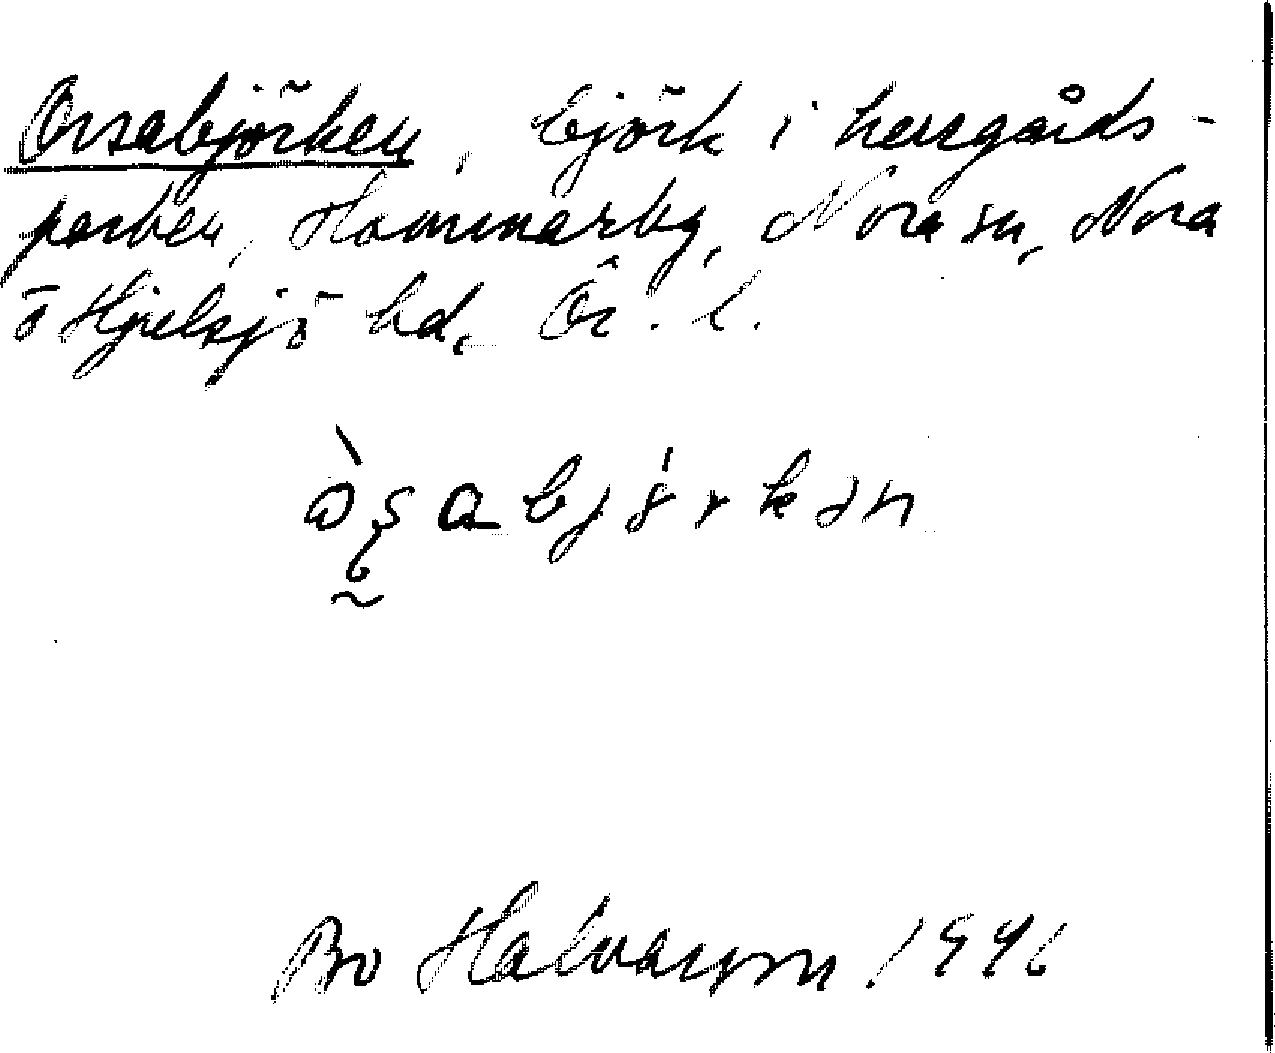 Orsabjörken, björk i herrgårds-
parken, Hammarby, Nora sn, Nora
o Hjulsjö hd, Ör. l.
björkən
Bo Halvarson 1996